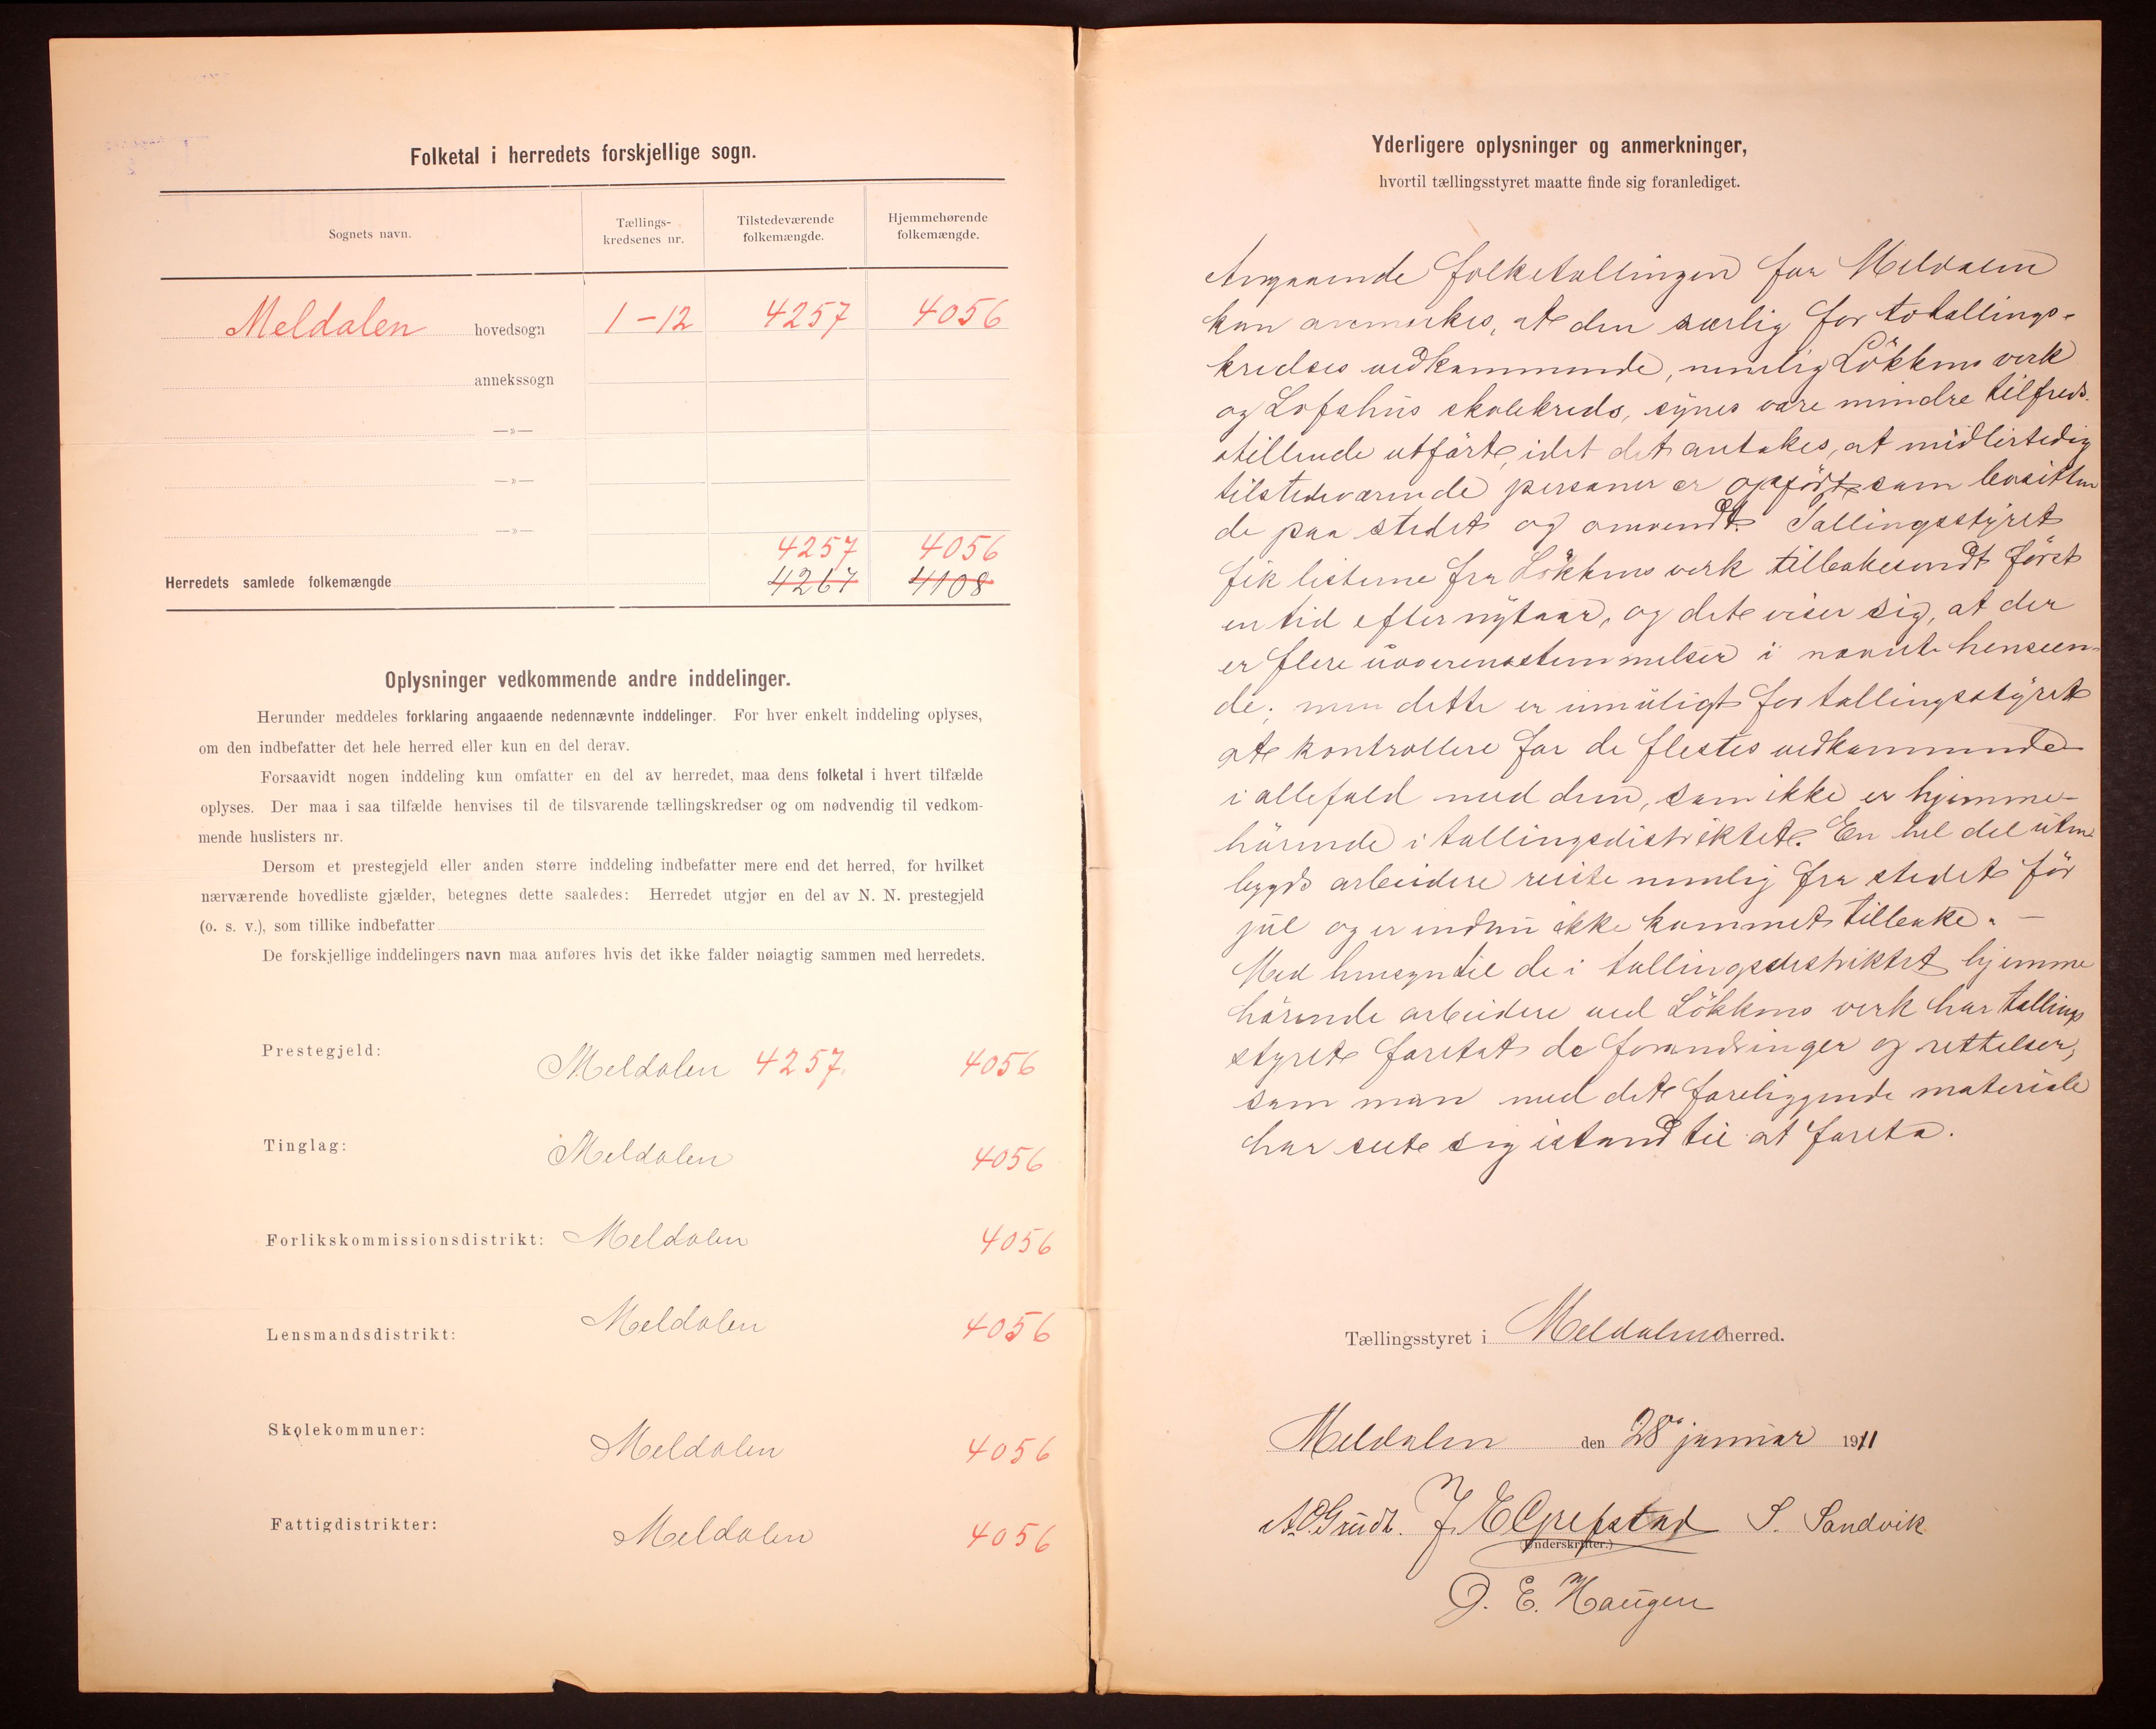 Folketal i herredets forskjellige sogn.
Sognets navn.
Tællings-
kredsenes nr.
Tilstedeværende
folkemængde.
Hjemmehørende
folkemængde.
Meldalen hovedsogn 1-12 4257 4056
annekssogn
—»—
—»—
—»—
4257 4056
Herredets samlede folkemængde 4267 4108
Oplysninger vedkommende andre inddelinger.
Herunder meddeles forklaring angaaende nedennævnte inddelinger. For hver enkelt inddeling oplyses,
om den indbefatter det hele herred eller kun en del derav.
Forsaavidt nogen inddeling kun omfatter en del av herredet, maa dens folketal i hvert tilfælde
oplyses. Der maa i saa tilfælde henvises til de tilsvarende tællingskredser og om nødvendig til vedkom-
mende huslisters nr.
Dersom et prestegjeld eller anden større inddeling indbefatter mere end det herred, for hvilket
nærværende hovedliste gjælder, betegnes dette saaledes: Herredet utgjør en del av N. N. prestegjeld
(o. s. v.), som tillike indbefatter
De forskjellige inddelingers navn maa anføres hvis det ikke falder nøiagtig sammen med herredets.
Prestegjeld: Meldalen 4257. 4056
Tinglag: Meldalen 4056
Forlikskommissionsdistrikt: Meldalen 4056
Lensmandsdistrikt: Meldalen 4056
Skolekommuner: Meldalen 4056
Fattigdistrikter: Meldalen 4056
Yderligere oplysninger og anmerkninger,
hvortil tællingsstyret maatte finde sig foranlediget.
Angaaende folketællingen for Meldalen
kan anmerkes, at den særlig for to tællings-
kredses vedkommende, nemlig Løkkens verk
og Lofshus skolekreds, synes være mindre tilfreds-
stillende utført, idet det antakes, at midlertidig
tilstedeværende personer er opført som bositten
de paa stedet og omvendt. Tællingsstyret
fik listerne fra Løkkens verk tilbakesendt først
en tid efter nytaar, og det viser sig, at der
er flere uoverensstemmelser i nævnte henseen-
de; men dette er umuligt for tællingsstyret
at kontrollere for de flestes vedkommende
i allefald med dem, som ikke er hjemme-
hørende i tællingsdistriktet. En hel del uten
bygds arbeidere reiste nemlig fra stedet før
jul og er endnu ikke kommet tilbake. —
Med hensyn til de i tællingsdistriktet hjemme
hørende arbeidere ved Løkkens verk har tællings
styret foretat de forandringer og rettelser,
som man med det foreliggende materiale
har seet sig istand til at foreta.
Tællingsstyret i Meldalens herred.
Meldalen den 28 januar 1911
A.O. Grudt. J. E. Grefstad S. Sandvik
(Underskrifter.)
O. E. Haugen